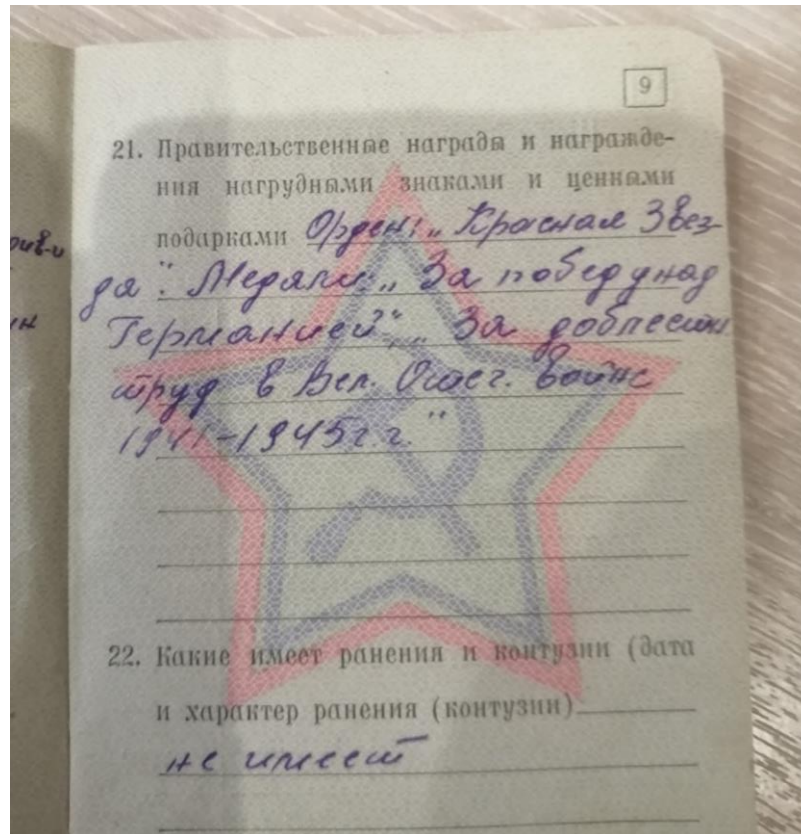 9
21. Правительственные награды и награжде-
ния нагрудными знаками и ценными
подарками Орден: „Красная Звез-
да". Медали: „За победу над
Германией", „За доблестн
труд в Вел. Отеч. войне
1941-1945 г.г."
22. Какие имеет ранения и контузии (дата
и характер ранения (контузии)
не имеет